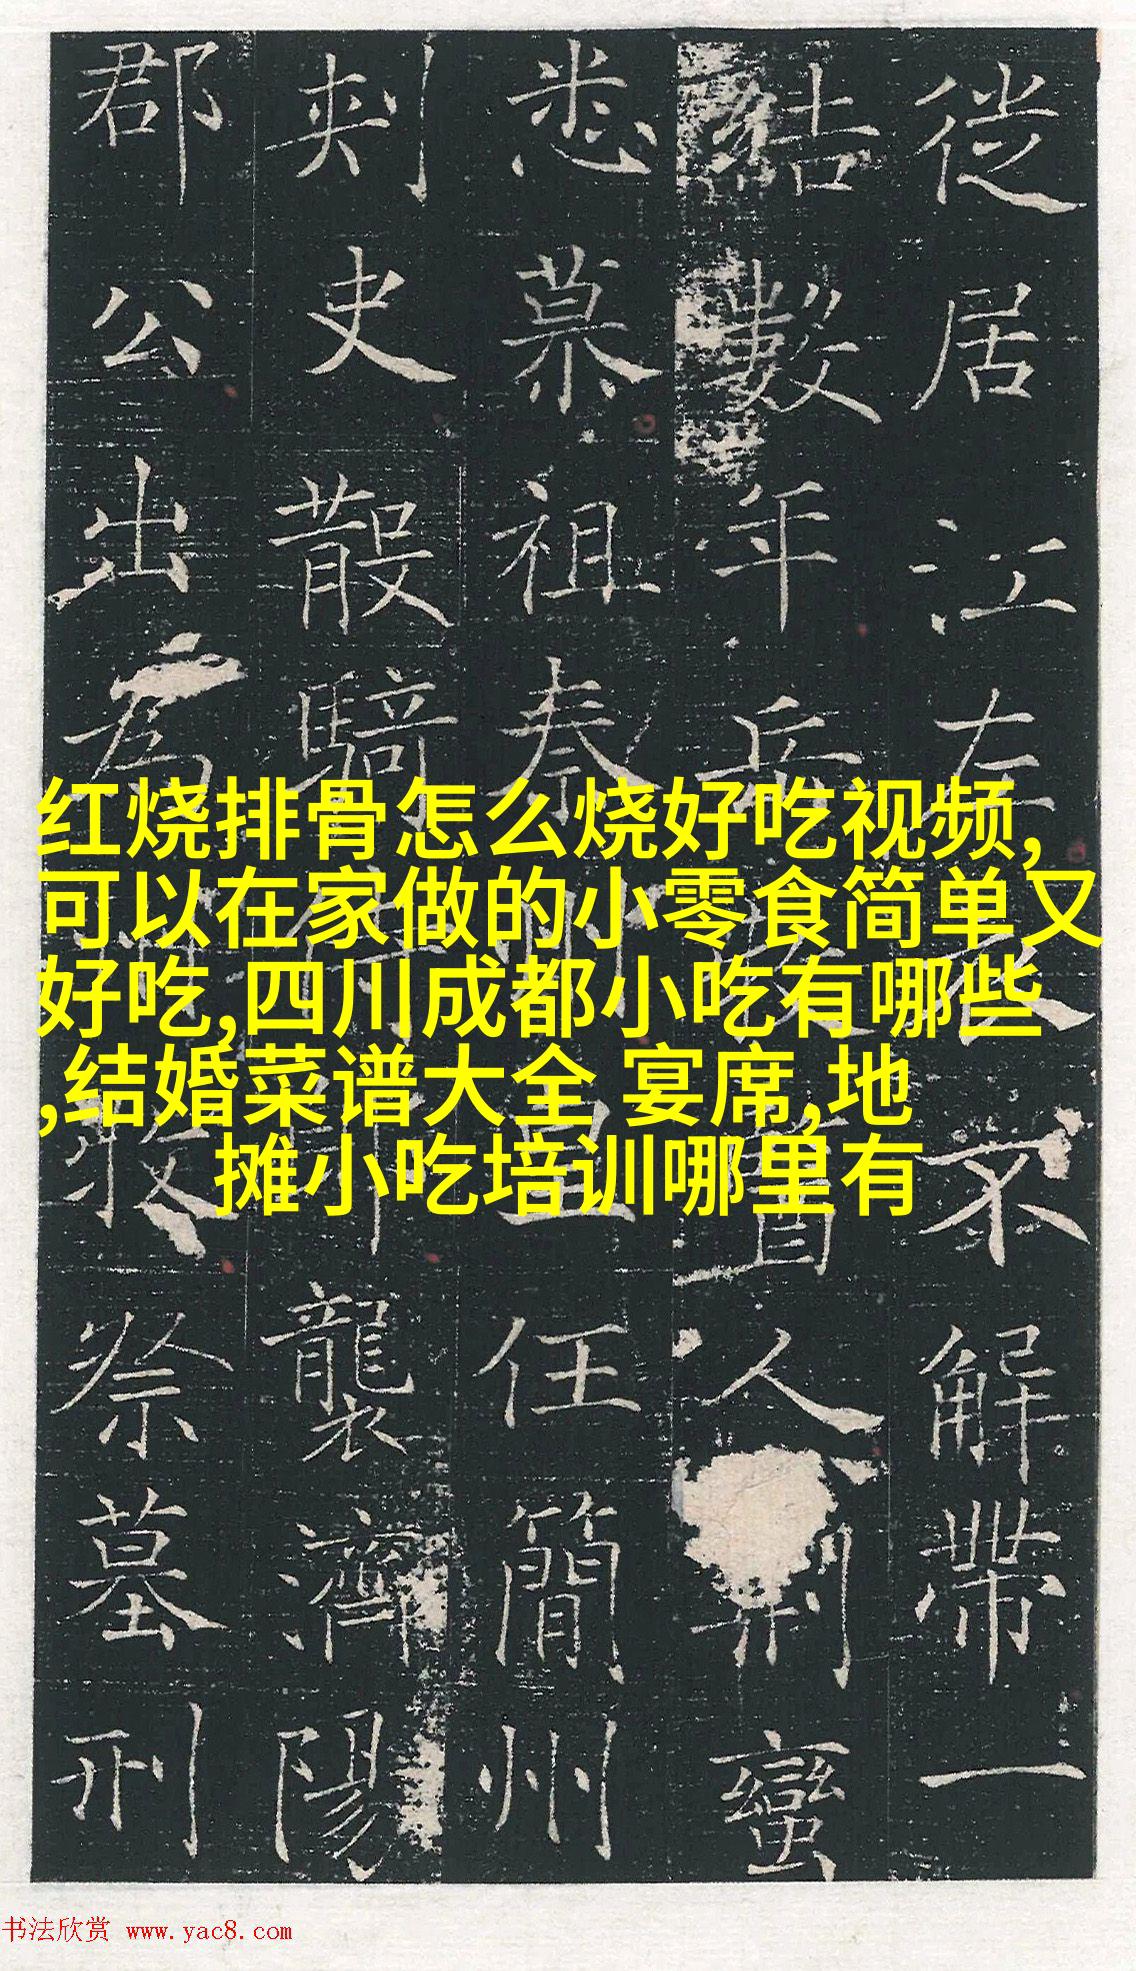 徙居江左不解帶一
數年人制蠻
悉慕祖任簡州
刺史散騎襲濟陽
郡公出為祭墓刑
红烧排骨怎么烧好吃视频,
可以在家做的小零食简单又
好吃,四川成都小吃有哪些
,结婚菜谱大全 宴席,地
摊小吃培训哪里有
书法欣赏 www.yac8.com